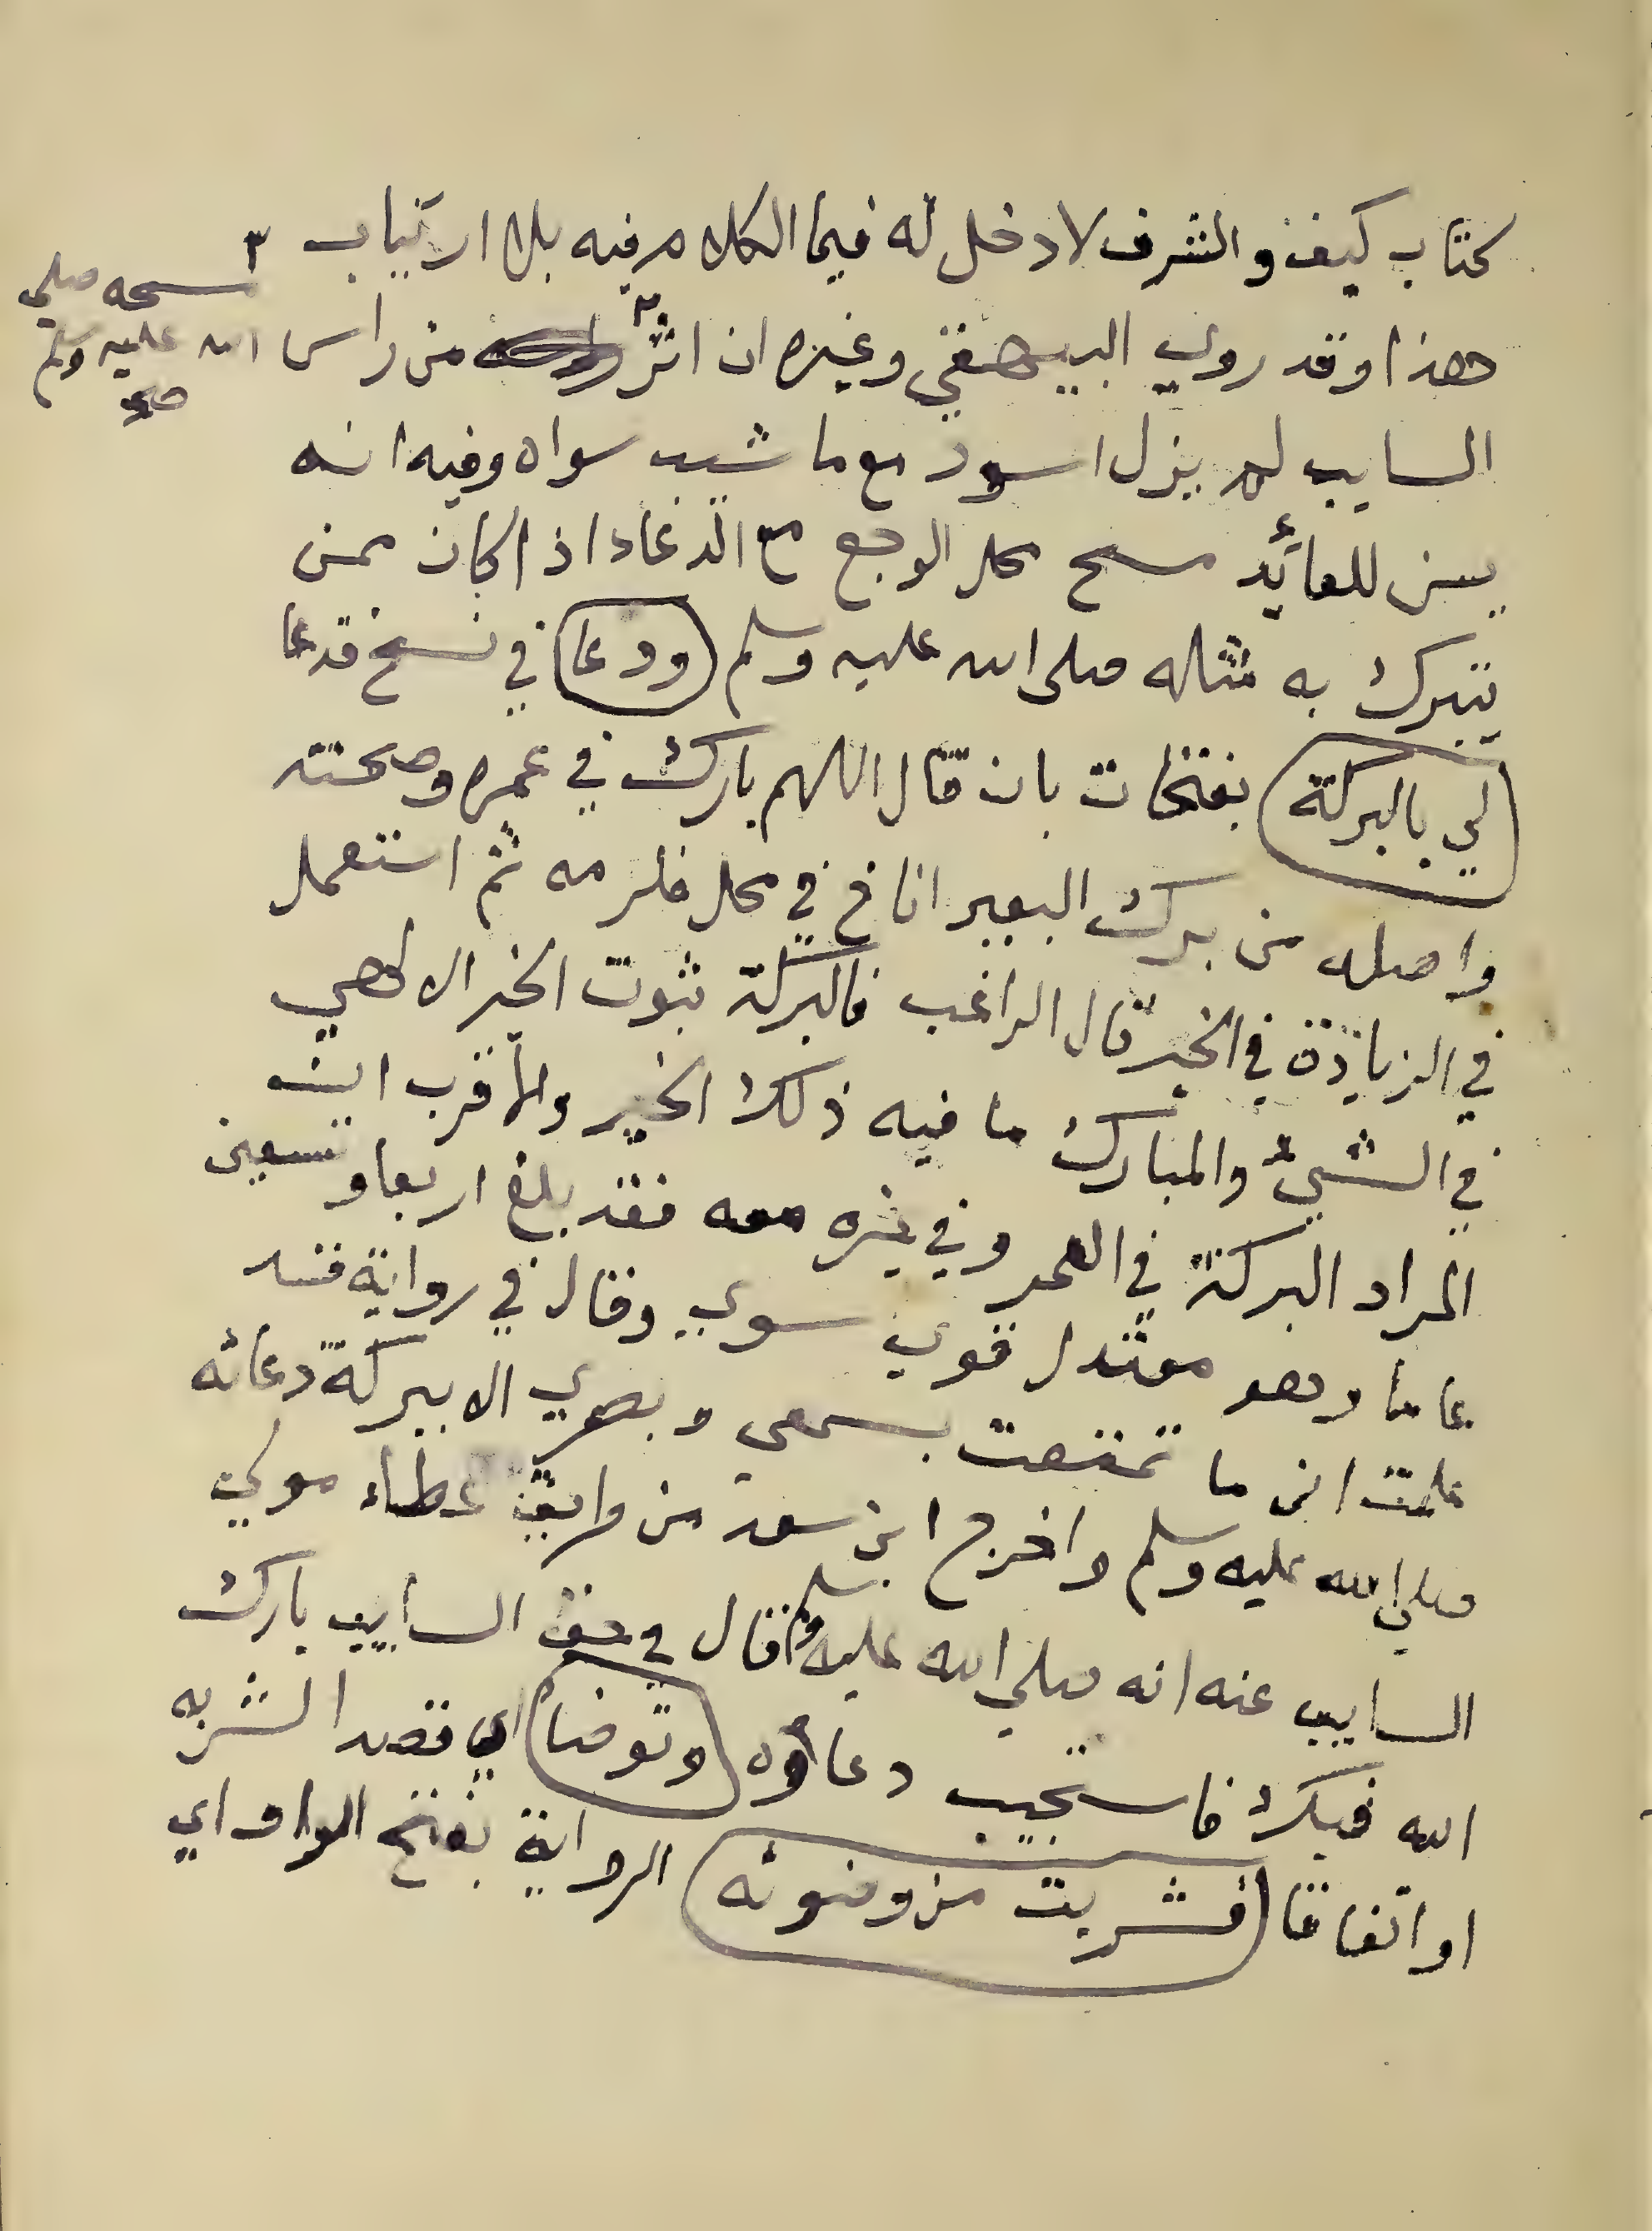 كتاب كيف والشرف لا دخل له فيما الكلام فيه بلا ارتياب
٣
مسحه صلي
الله عليه وسلم
صح
هذا وقد روي البيهقي وغيره ان اثر ٣ من راس
السايب لم يزل اسود مع ما شيب سواه وفيه انه
يسن للعائد مسح محل الوجع مع الدعاء اذا كان ممن
يتبرك به مثله صلى الله عليه وسلم (ودعا) في نسخ فدعا
(لي بالبركة) بفتحات بان قال اللهم بارك في عمره وصحته
واصله من برك البعير اناخ في محل فلزمه ثم استعمل
في الزيادة في الخير قال الراغب فالبركة ثبوت الخير الالهي
في الشيئ والمبارك ما فيه ذلك الخير والأقرب ان
المراد البركة في العمر وفي غيره معه فقد بلغ اربعا وتسعين
عاما وهو معتدل قوي سوي وقال في رواية قد
علمت اني ما تمتعت بسمعي وبصري الا ببركة دعائه
صلي الله عليه وسلم واخرج ابن سعد من طريق عطاء مولي
السايب عنه انه صلي الله عليه وسلم قال في حق السايب بارك
الله فيك فاستجيب دعاؤه (وتوضا) اي قصد الشربه
او اتفاقا (فشربت من وضوئه) الرواية بفتح الواو اي